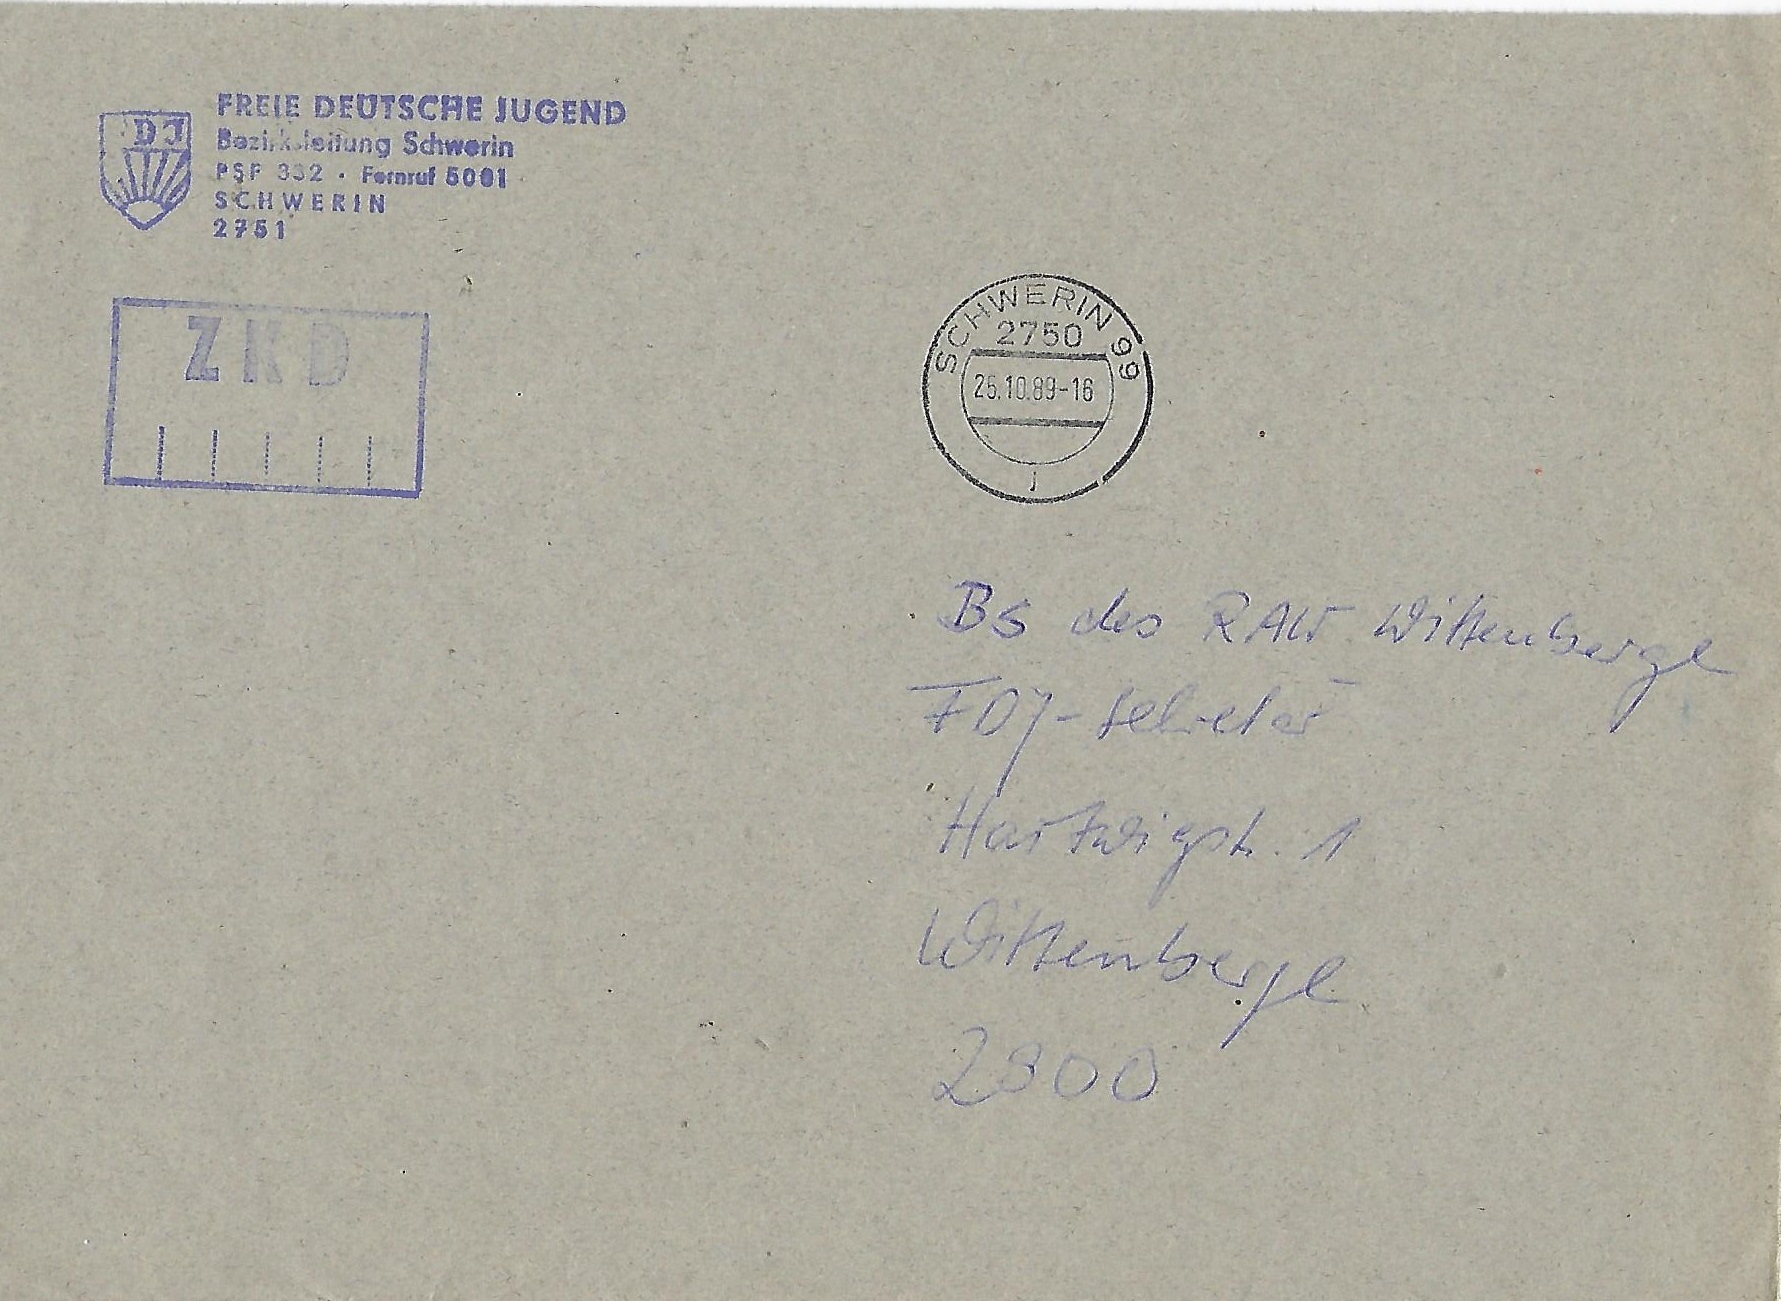 DJ
FREIE DEUTSCHE JUGEND
Bezirksleitung Schwerin
PSF 332 · Fernruf 5001
SCHWERIN
2751
ZKD
SCHWERIN 99
2750
25.10.89-16
j
BS des RAW Wittenberge
FDJ-Sekretär
Hartwigstr. 1
Wittenberge
2900